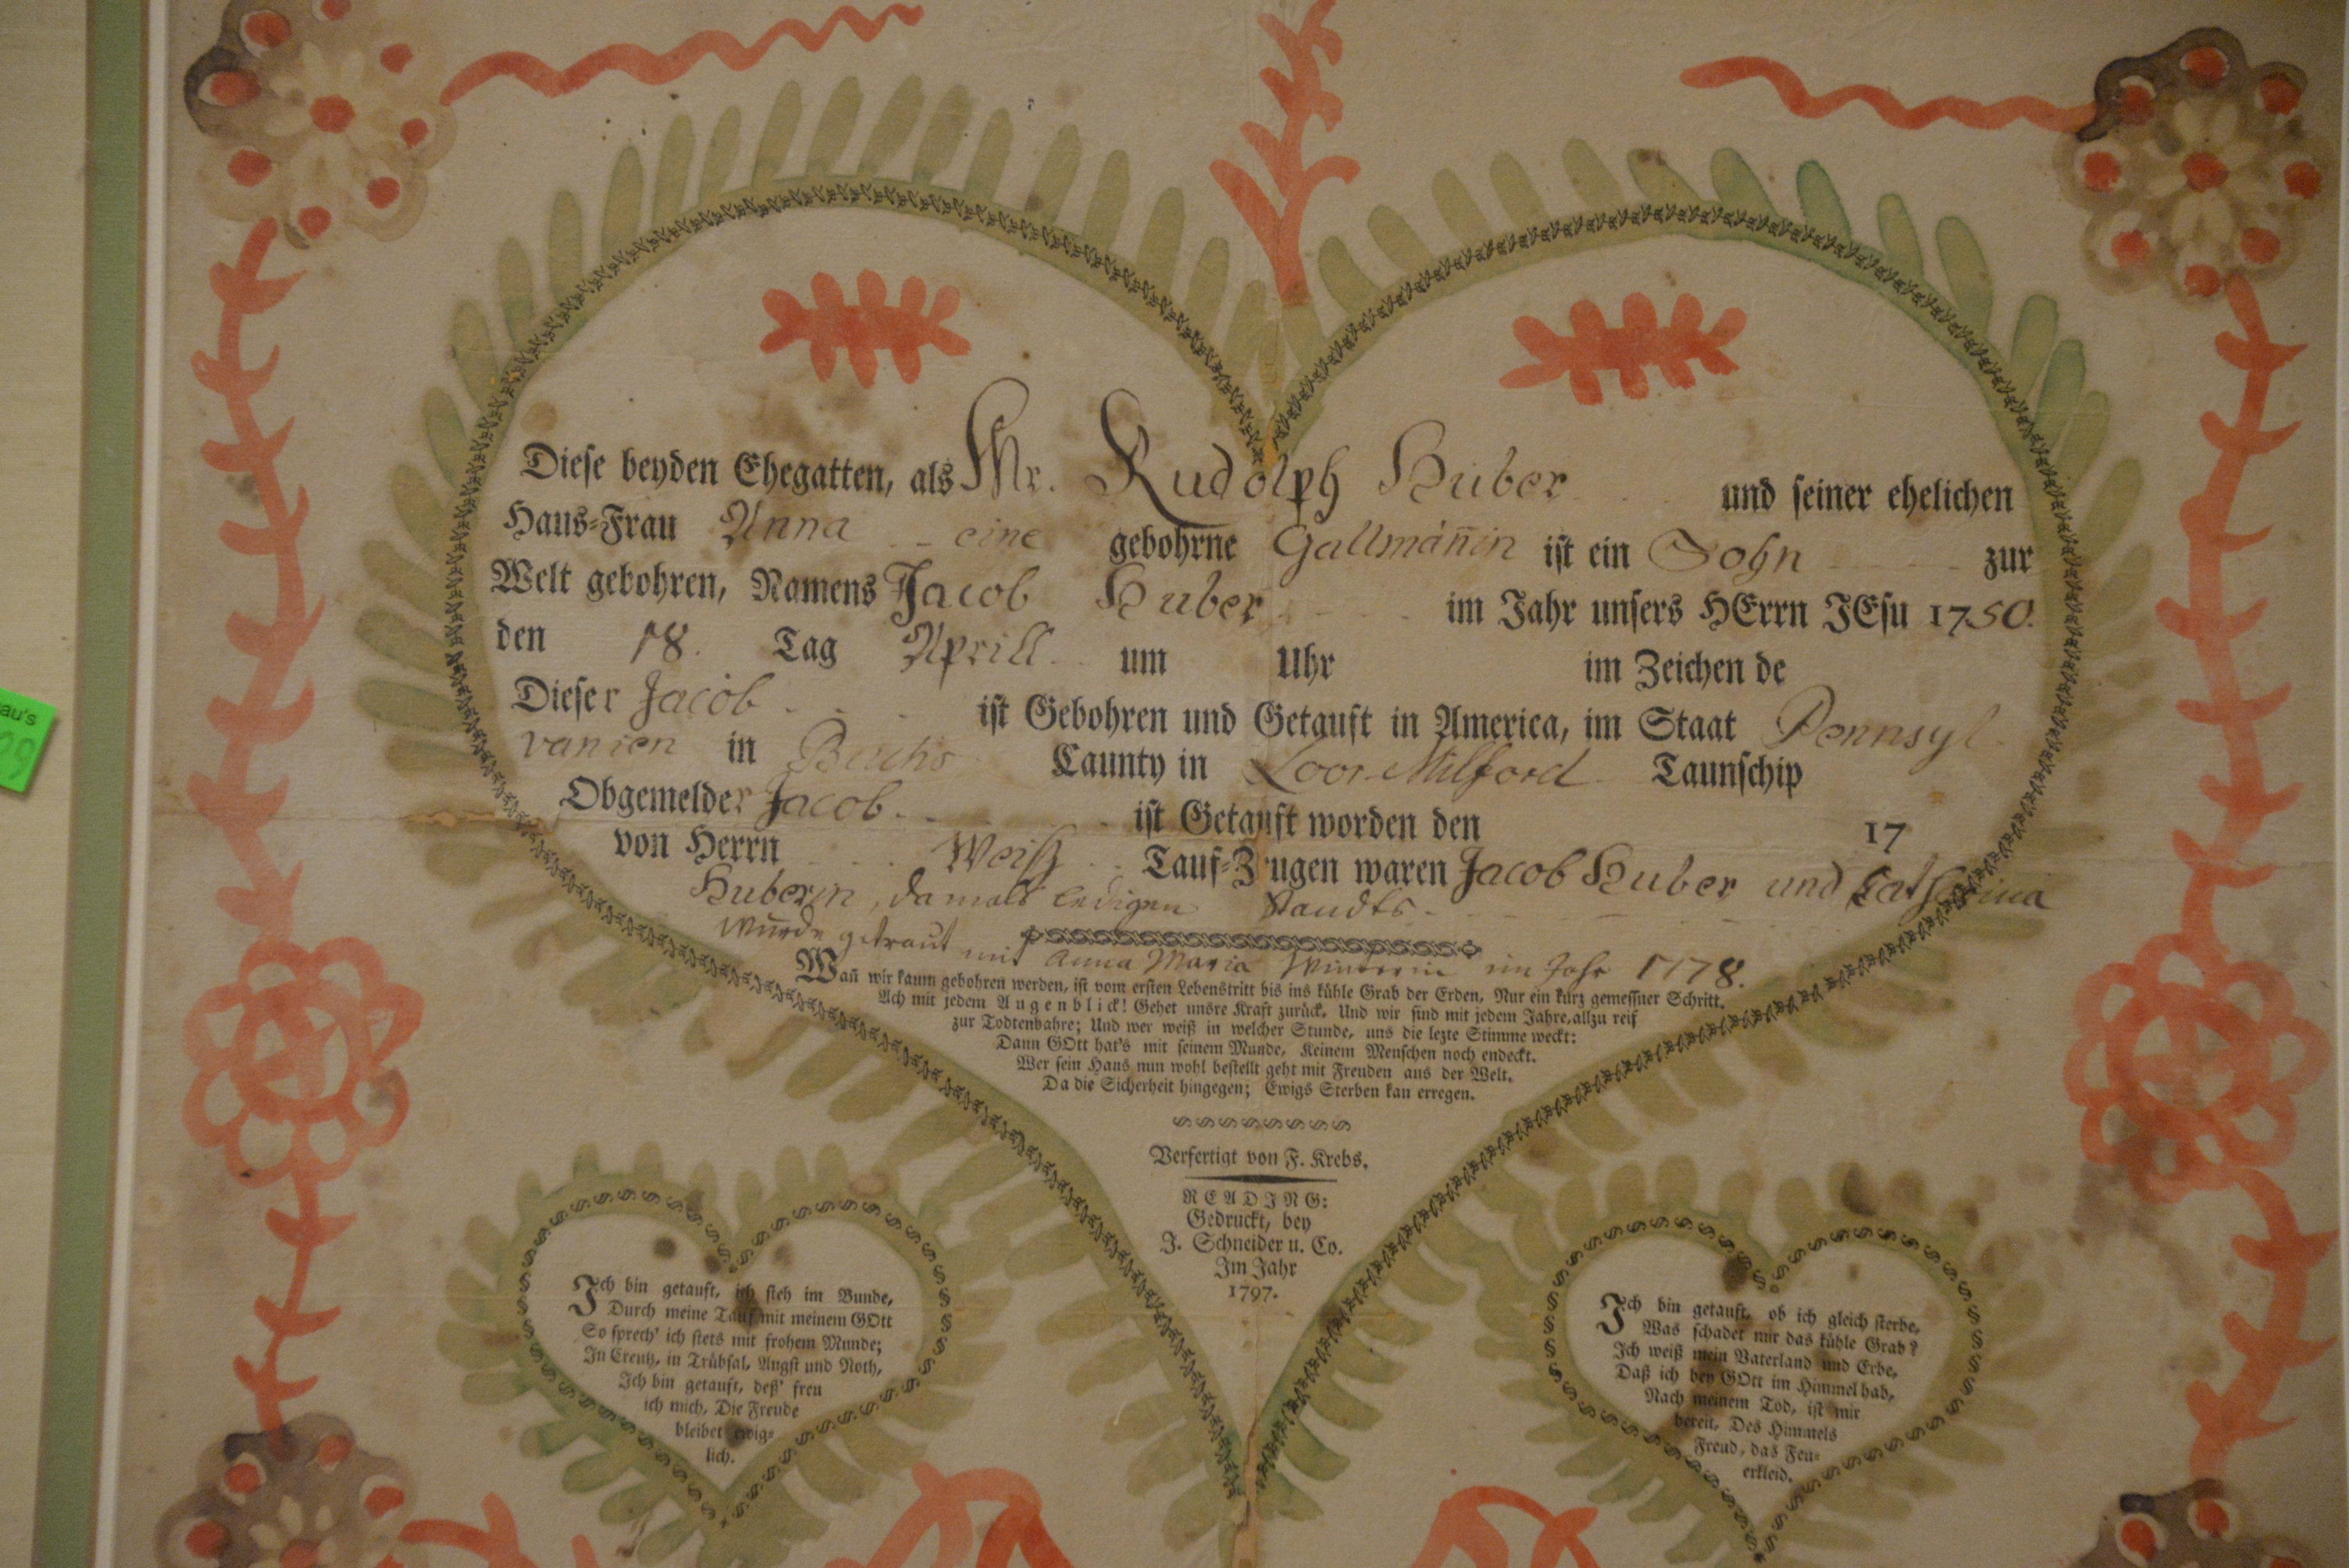 Diese beyden Ehegatten, als Mr. Rudolph Huber und seiner ehelichen
Haus-Frau Anna eine gebohrne Gallmännin ist ein Sohn zur
Welt gebohren, Namens Jacob Huber im Jahr unsers HErrn JEsu 1750.
den 18. Tag Aprill um Uhr im Zeichen de
Dieser Jacob ist Gebohren und Getauft in America, im Staat Pennsyl-
vanien in Bucks Caunty in Loor Milford Taunschip
Obgemelder Jacob ist Getauft worden den 17
von Herrn Weiß Tauf-Zeugen waren Jacob Huber und Catharina
Huberin, damals ledigen Standts
Wurde getraut mit Anna Maria im Jahr 1778.
Wañ wir kaum gebohren werden, ist vom ersten Lebenstritt bis ins kühle Grab der Erden, Nur ein kurz gemessner Schritt.
Ach mit jedem Augenblick! Gehet unsre Kraft zurück, Und wir sind mit jedem Jahre, allzu reif
zur Todtenbahre; Und wer weiß in welcher Stunde, uns die lezte Stimme weckt:
Dann GOtt hat's mit seinem Munde, Keinem Menschen noch endeckt.
Wer sein Haus nun wohl bestellt geht mit Freuden aus der Welt.
Da die Sicherheit hingegen; Ewigs Sterben kan erregen.
Verfertigt von F. Krebs.
READING:
Gedruckt, bey
J. Schneider u. Co.
Im Jahr
1797.
Ich bin getauft, ich steh im Bunde,
Durch meine Tauf mit meinem GOtt
So sprech' ich stets mit frohem Munde;
In Creutz, in Trübsal, Angst und Noth,
Ich bin getauft, deß' freu
ich mich, Die Freude
bleibet ewig-
lich.
Ich bin getauft, ob ich gleich sterbe,
Was schadet mir das kühle Grab?
Ich weiß mein Vaterland und Erbe,
Daß ich bey GOtt im Himmel hab,
Nach meinem Tod, ist mir
bereit, Des Himmels
Freud, das Feu-
erkleid.